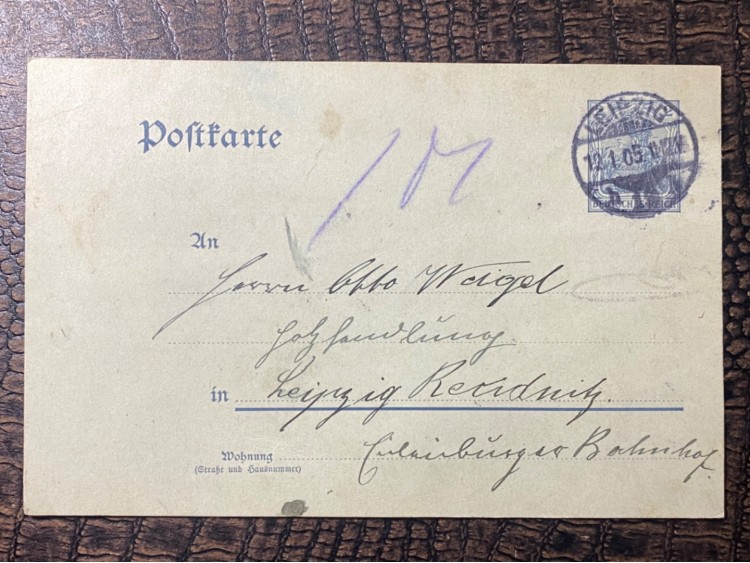 Postkarte
LEIPZIG
DEUTSCHES REICH
An
Herrn Otto Weigel
Holzhandlung
in Leipzig Reudnitz.
Wohnung
(Straße und Hausnummer)
Eilenburger Bahnhof